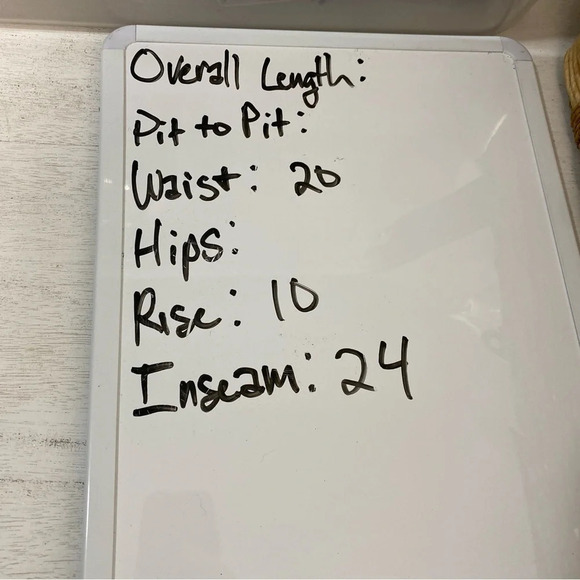 Overall Length:
Pit to Pit:
Waist: 20
Hips:
Rise: 10
Inseam: 24